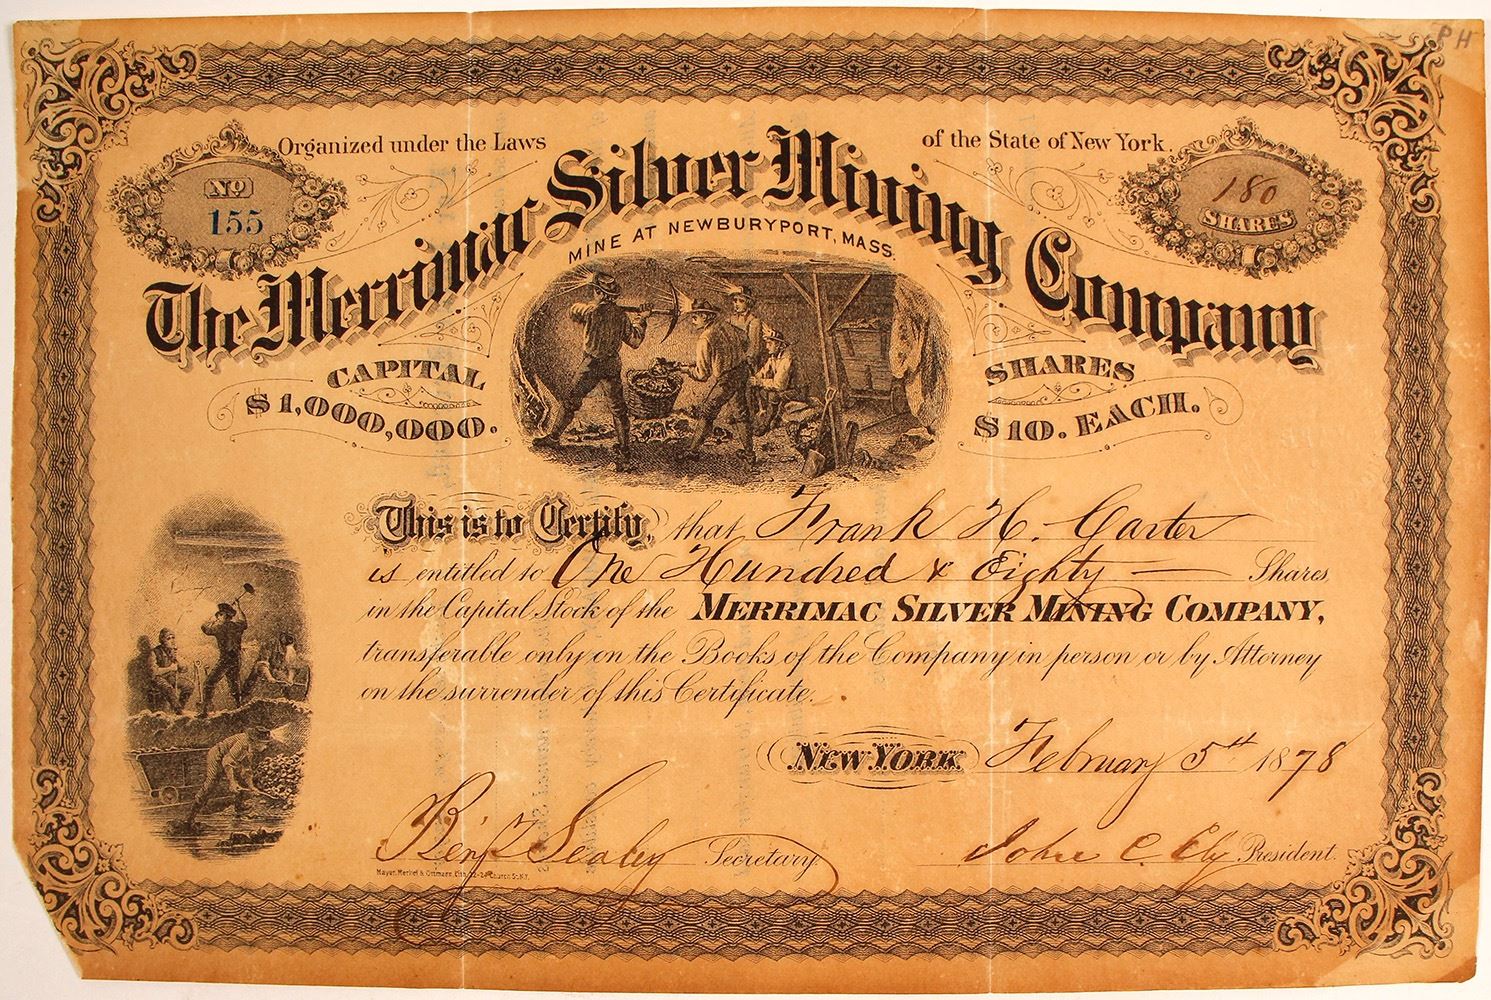 PH
Organized under the Laws of the State of New York.
No
155
180
SHARES
The Merrimac Silver Mining Company
MINE AT NEWBURYPORT, MASS.
CAPITAL
$1,000,000.
SHARES
$10. EACH.
This is to Certify, that Frank H. Carter
is entitled to One Hundred & Eighty — Shares
in the Capital Stock of the MERRIMAC SILVER MINING COMPANY,
transferable only on the Books of the Company in person or by Attorney
on the surrender of this Certificate.
NEW YORK February 5th 1878
Benj F Sealey Secretary.
John C. Ely President.
Mayer, Merkel & Ottmann, Lith. 22-24 Church St. N.Y.